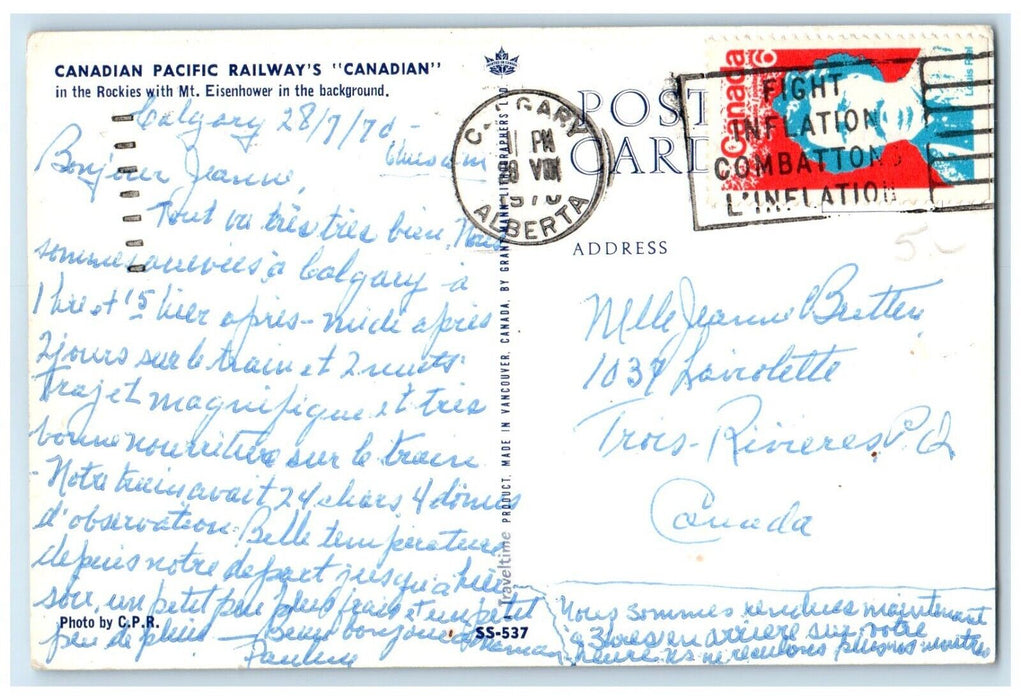 CANADIAN PACIFIC RAILWAY'S "CANADIAN"
in the Rockies with Mt. Eisenhower in the background.
Calgary 28/7/70 -
Bonjour Jeanne,
Tout va très très bien, Nous
sommes arrivées à Calgary à
1 hre et 15 hier après-midi après
2 jours sur le train et 2 nuits
Trajet magnifique et très
bonne nourriture sur le train
- Notre train avait 24 chars, 4 dômes
d'observation. Belle température
depuis notre départ jusqu'à hier
soir, un petit peu plus frais et un petit
peu de pluie. - Beau bonjour
Pauline
Nous sommes rendues maintenant
à 3 hres en arrière sur votre
heure. ns ne reculons plus nos montres
Photo by C.P.R.
SS-537
Traveltime PRODUCT. MADE IN VANCOUVER, CANADA, BY GRANT-MANN LITHOGRAPHERS LTD.
POST
CARD
ADDRESS
CALGARY
1 PM
VIII
1970
ALBERTA
FIGHT
INFLATION
COMBATTONS
L'INFLATION
Canada 6
Louis Riel
5.-
Mlle Jeanne
1037 Laviolette
Trois-Rivieres P.Q
Canada